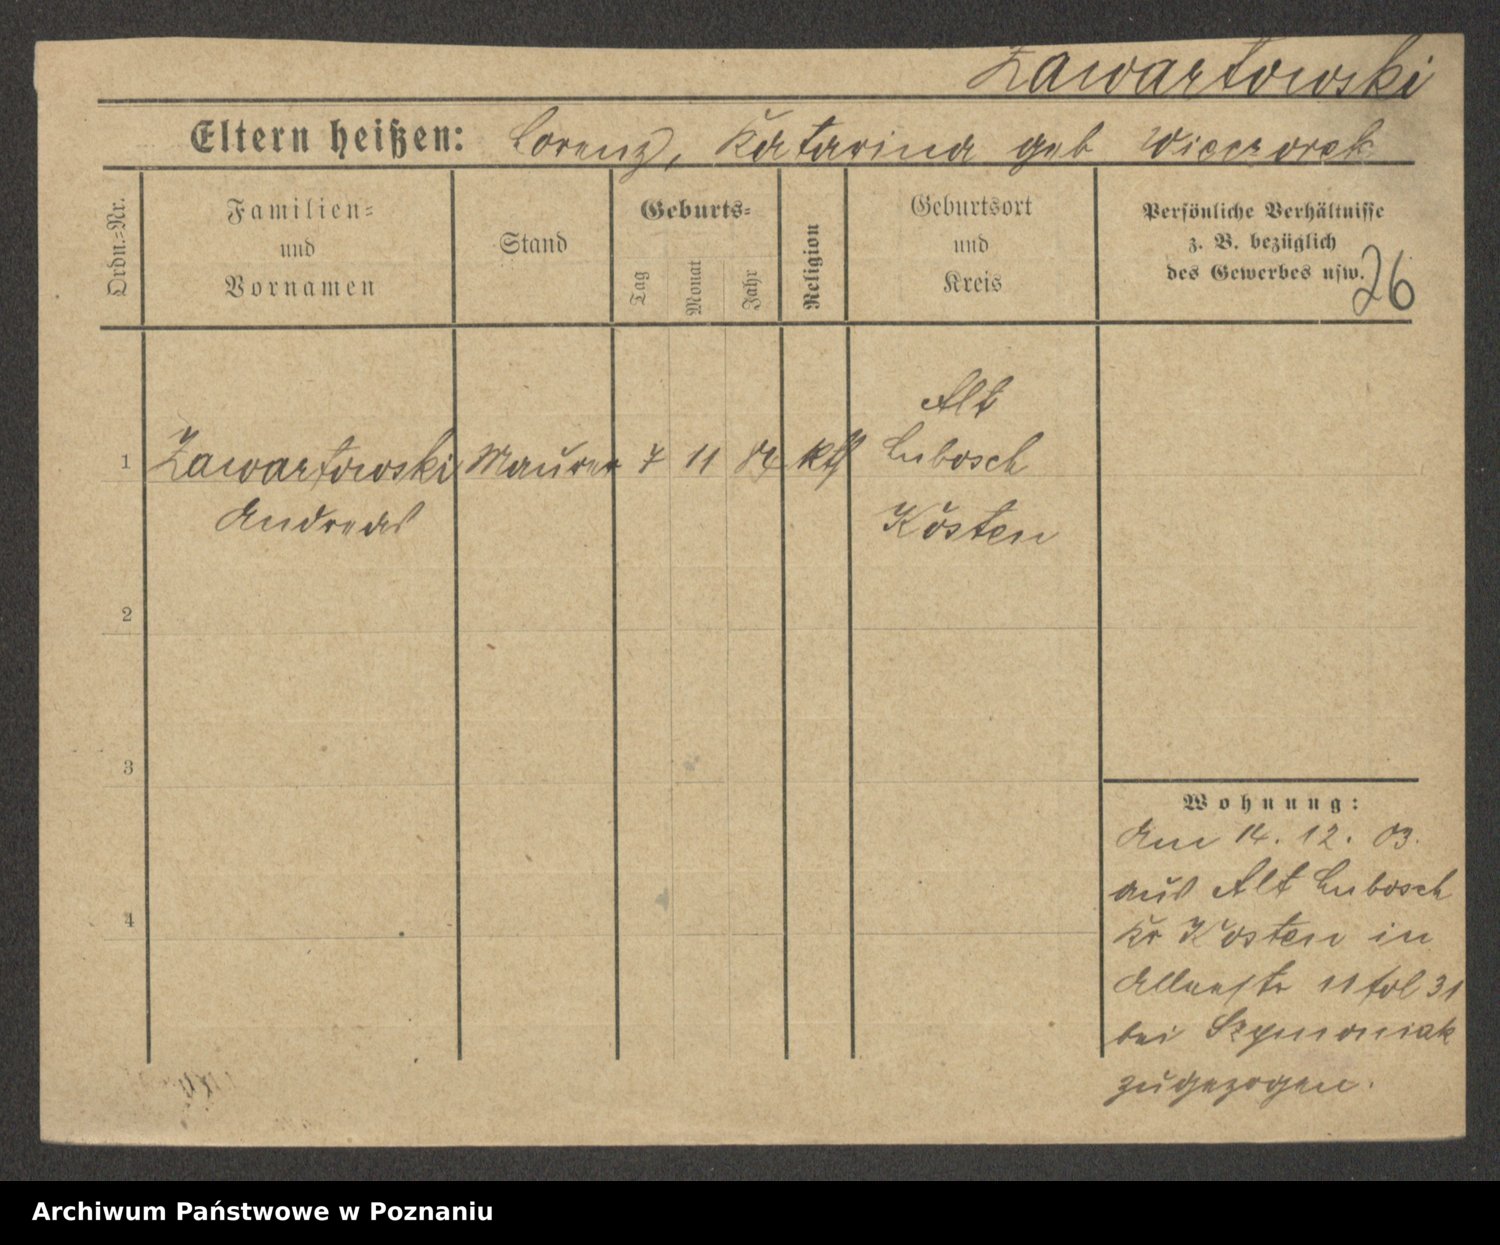 Zawartowski
Eltern heißen: Lorenz, Katarina geb Wieczorek
Ordn.=Nr.
Familien=
und
Vornamen
Stand
Geburts=
Tag
Monat
Jahr
Religion
Geburtsort
und
Kreis
Persönliche Verhältnisse
z. B. bezüglich
des Gewerbes usw.
26
1 Zawartowski Maurer 7 11 84 kth Alt Lubosch
Andreas Kosten
2
3
4
Wohnung:
Am 14. 12. 03.
aus Alt Lubosch
Kr Kosten in
11 fol 31
bei Szymoniak
zugezogen.
Archiwum Państwowe w Poznaniu